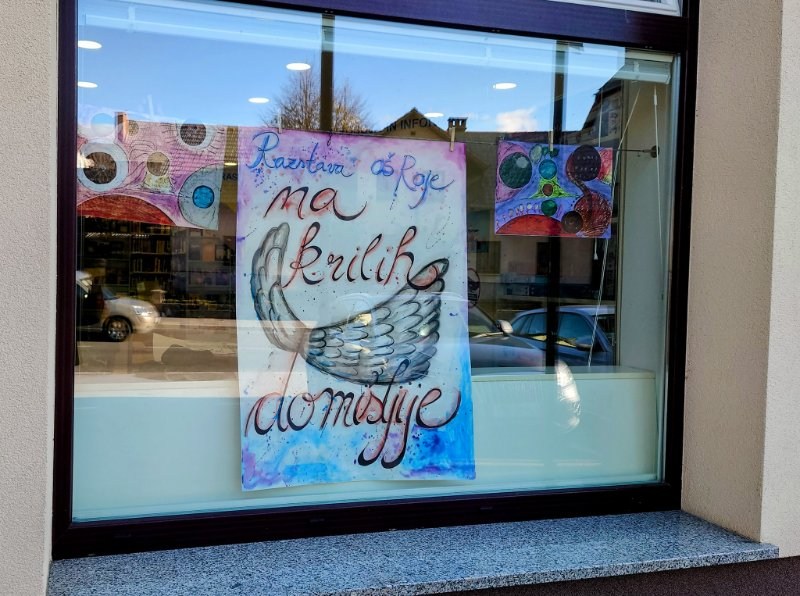 Razstava OŠ Roje
na
krilih
domišljije